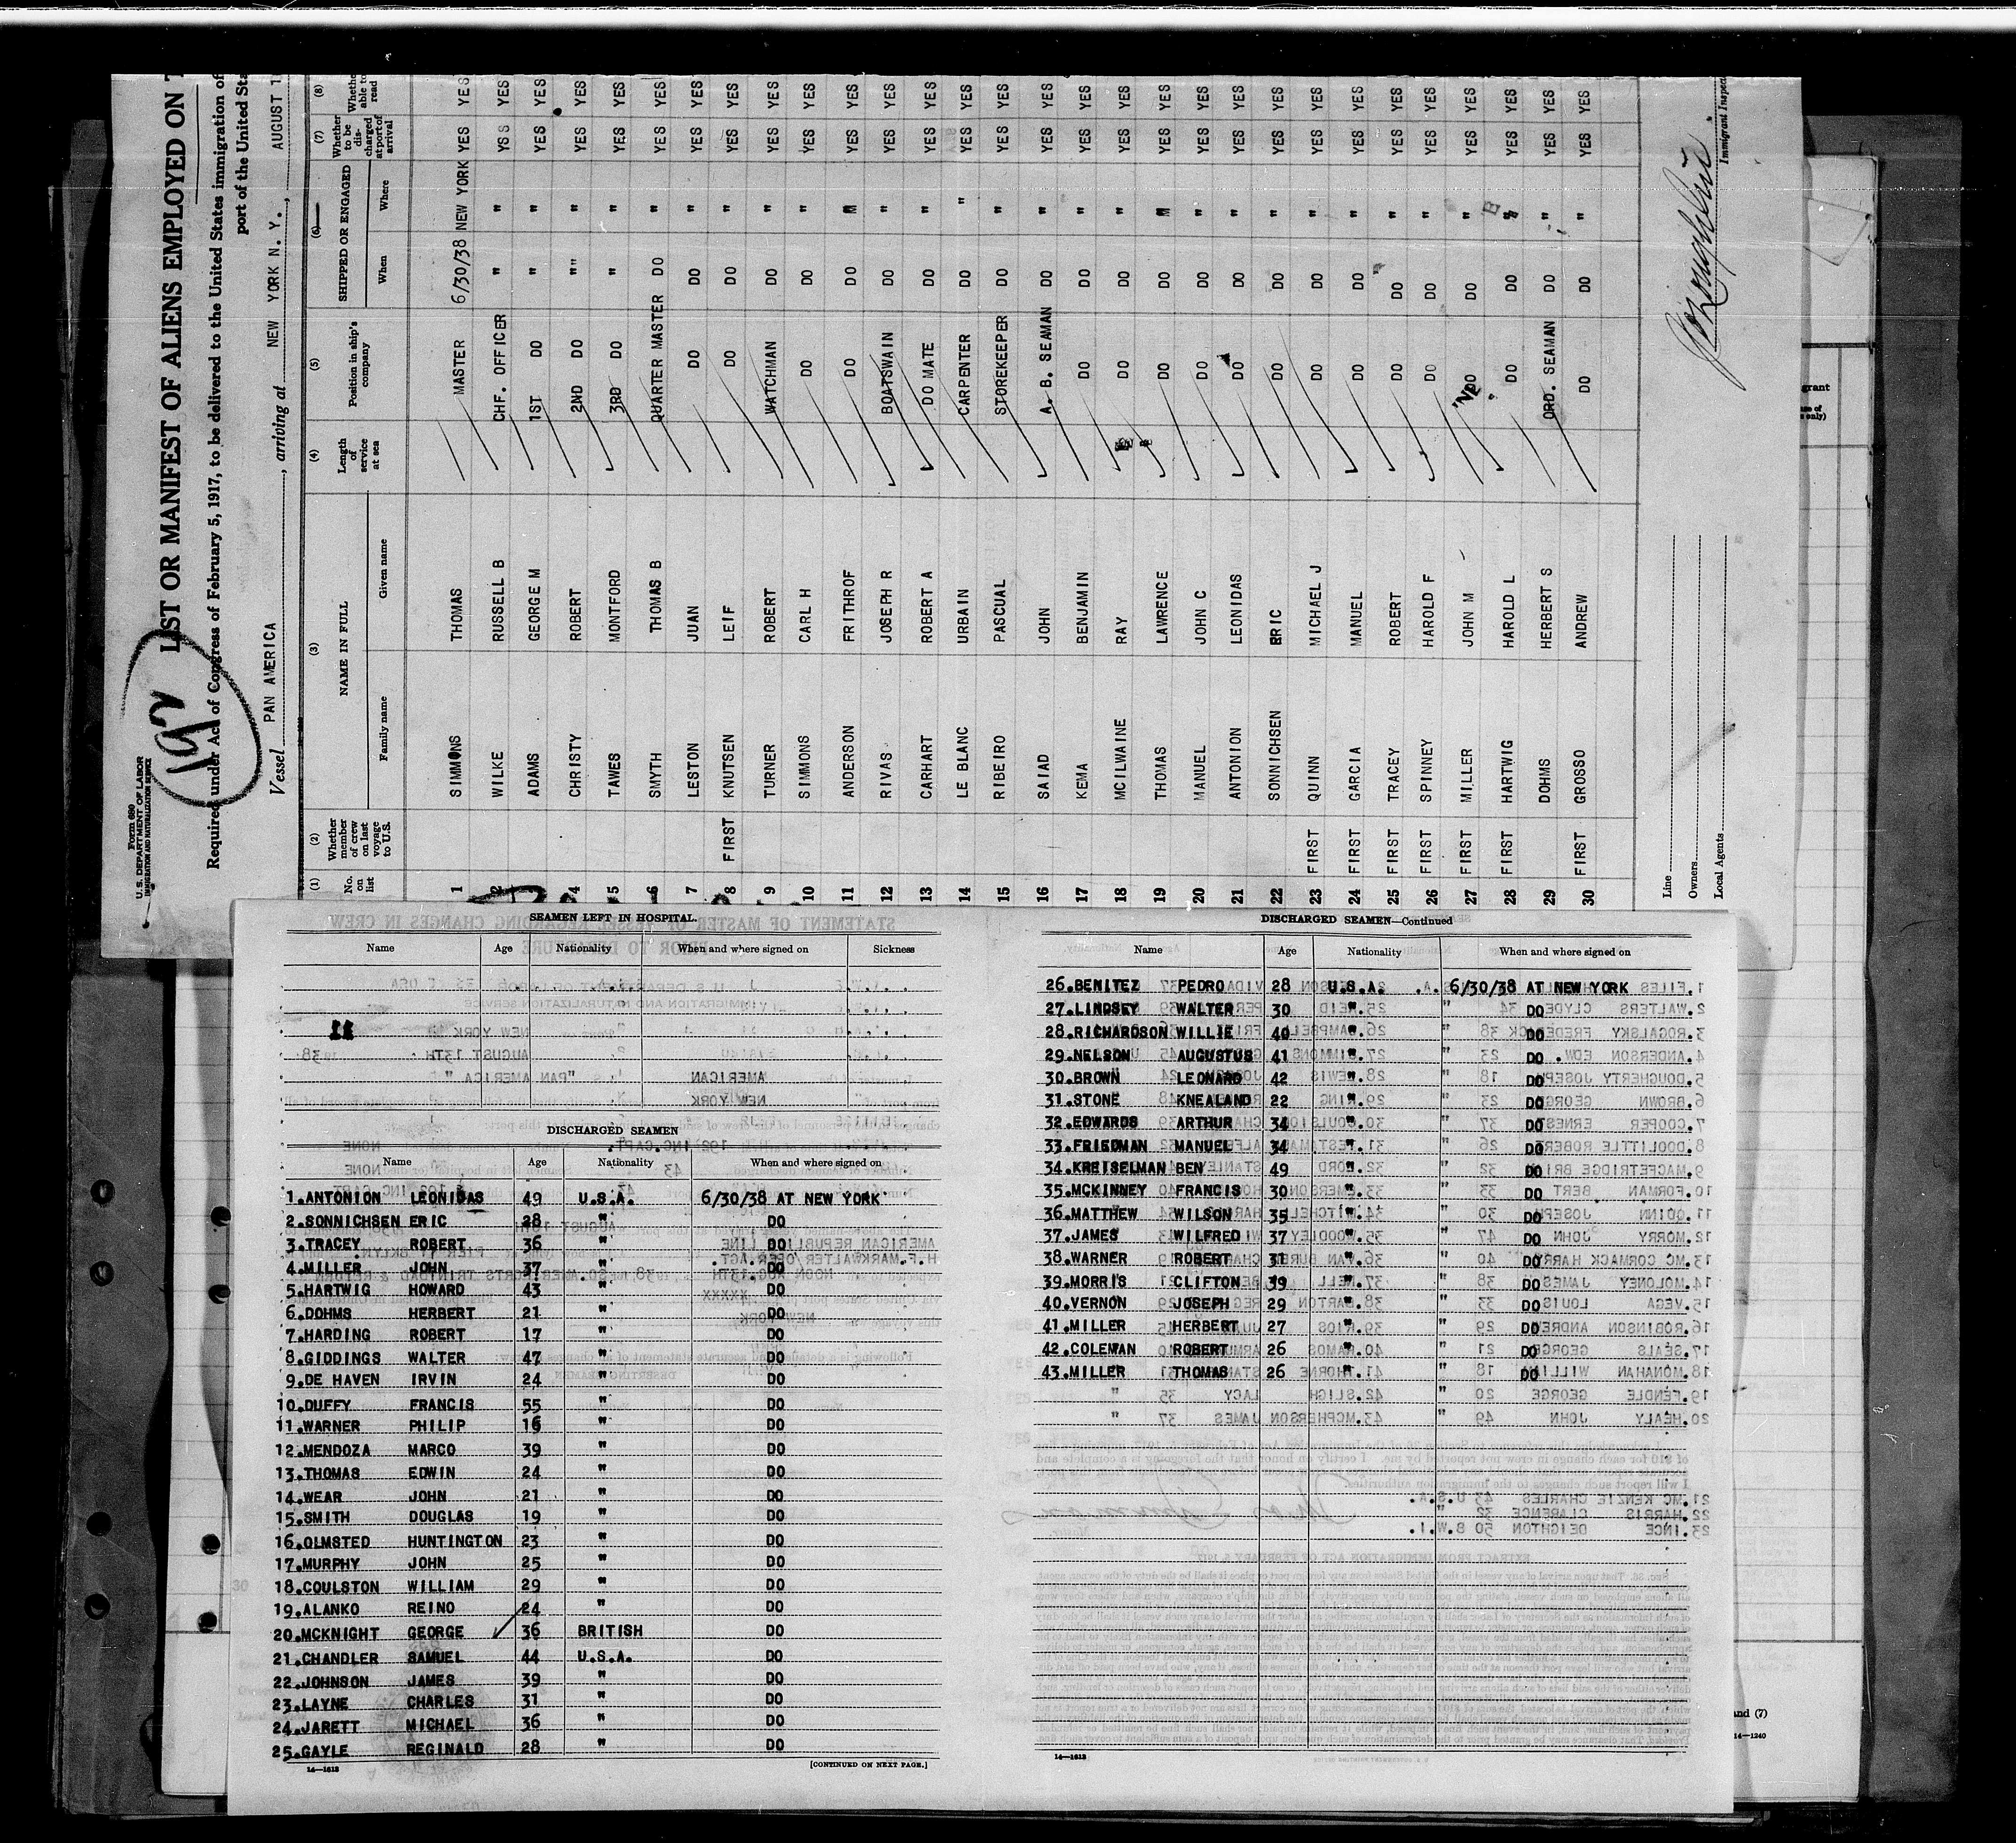 Form 680
U. S. DEPARTMENT OF LABOR
IMMIGRATION AND NATURALIZATION SERVICE
192
LIST OR MANIFEST OF ALIENS EMPLOYED ON T
Required under Act of Congress of February 5, 1917, to be delivered to the United States immigration of
port of the United Sta
Vessel PAN AMERICA, arriving at NEW YORK N. Y., AUGUST 1
(1) (2) (3) (4) (5) (6) (7) (8)
No. on list Whether member of crew on last voyage to U.S. NAME IN FULL Length of service at sea Position in ship's company SHIPPED OR ENGAGED Whether to be discharged at port of arrival Whethe able to read
Family name Given name When Where
1 SIMMONS THOMAS MASTER 6/30/38 NEW YORK YES YES
2 WILKE RUSSELL B CHF. OFFICER " " YSS YES
3 ADAMS GEORGE M 1ST DO " " YES YES
4 CHRISTY ROBERT 2ND DO "" " YES YES
5 TAWES MONTFORD 3RD DO " " YES YES
6 SMYTH THOMAS B QUARTER MASTER DO " YES YES
7 LESTON JUAN DO DO " YES YES
8 FIRST KNUTSEN LEIF DO DO " YES YES
9 TURNER ROBERT WATCHMAN DO " YES YES
10 SIMMONS CARL H DO DO " YES YES
11 ANDERSON FRITHROF DO DO " YES YES
12 RIVAS JOSEPH R BOATSWAIN DO " YES YES
13 CARHART ROBERT A DO MATE DO " YES YES
14 LE BLANC URBAIN CARPENTER DO " YES YES
15 RIBEIRO PASCUAL STOREKEEPER DO " YES YES
16 SAIAD JOHN A. B. SEAMAN DO " YES YES
17 KEMA BENJAMIN DO DO " YES YES
18 MCILWAINE RAY DO DO " YES YES
19 THOMAS LAWRENCE DO DO " YES YES
20 MANUEL JOHN C DO DO " YES YES
21 ANTONION LEONIDAS DO DO " YES YES
22 SONNICHSEN ERIC DO DO " YES YES
23 FIRST QUINN MICHAEL J DO DO " YES YES
24 FIRST GARCIA MANUEL DO DO " YES YES
25 FIRST TRACEY ROBERT DO DO " YES YES
26 FIRST SPINNEY HAROLD F DO DO " YES YES
27 FIRST MILLER JOHN M DO DO " YES YES
28 FIRST HARTWIG HAROLD L DO DO " YES YES
29 DOHMS HERBERT S ORD. SEAMAN DO " YES YES
30 FIRST GROSSO ANDREW DO DO " YES YES
Line
Owners
Local Agents
Immigrant Inspec
SEAMEN LEFT IN HOSPITAL.
Name Age Nationality When and where signed on Sickness
DISCHARGED SEAMEN
Name Age Nationality When and where signed on
1.ANTONION LEONIDAS 49 U.S.A. 6/30/38 AT NEW YORK
2.SONNICHSEN ERIC 28 " DO
3.TRACEY ROBERT 36 " DO
4.MILLER JOHN 37 " DO
5.HARTWIG HOWARD 43 " DO
6.DOHMS HERBERT 21 " DO
7.HARDING ROBERT 17 " DO
8.GIDDINGS WALTER 47 " DO
9.DE HAVEN IRVIN 24 " DO
10.DUFFY FRANCIS 55 " DO
11.WARNER PHILIP 16 " DO
12.MENDOZA MARCO 39 " DO
13.THOMAS EDWIN 24 " DO
14.WEAR JOHN 21 " DO
15.SMITH DOUGLAS 19 " DO
16.OLMSTED HUNTINGTON 23 " DO
17.MURPHY JOHN 25 " DO
18.COULSTON WILLIAM 29 " DO
19.ALANKO REINO 24 " DO
20.MCKNIGHT GEORGE 36 BRITISH DO
21.CHANDLER SAMUEL 44 U.S.A. DO
22.JOHNSON JAMES 39 " DO
23.LAYNE CHARLES 31 " DO
24.JARETT MICHAEL 36 " DO
25.GAYLE REGINALD 28 " DO
14—1613 [CONTINUED ON NEXT PAGE.]
DISCHARGED SEAMEN—Continued
Name Age Nationality When and where signed on
26.BENITEZ PEDRO 28 U.S.A. 6/30/38 AT NEW YORK
27.LINDSEY WALTER 30 " DO
28.RICHARDSON WILLIE 40 " DO
29.NELSON AUGUSTUS 41 " DO
30.BROWN LEONARD 42 " DO
31.STONE KNEALAND 22 " DO
32.EDWARDS ARTHUR 34 " DO
33.FRIEDMAN MANUEL 34 " DO
34.KREISELMAN BEN 49 " DO
35.MCKINNEY FRANCIS 30 " DO
36.MATTHEW WILSON 35 " DO
37.JAMES WILFRED 37 " DO
38.WARNER ROBERT 31 " DO
39.MORRIS CLIFTON 39 " DO
40.VERNON JOSEPH 29 " DO
41.MILLER HERBERT 27 " DO
42.COLEMAN ROBERT 26 " DO
43.MILLER THOMAS 26 " DO
14—1613
grant
only)
and (7)
14—1240